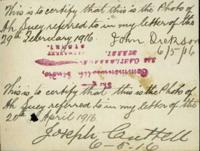 This is to certify that this is the Photo of
Ah Suey referred to in my letter of the
29th February 1916
John Dickson
6/5/16
This is to certify that this is the Photo of
Ah Suey referred to in my letter of the
20th April 1916
Joseph Cuttell
6-5-16